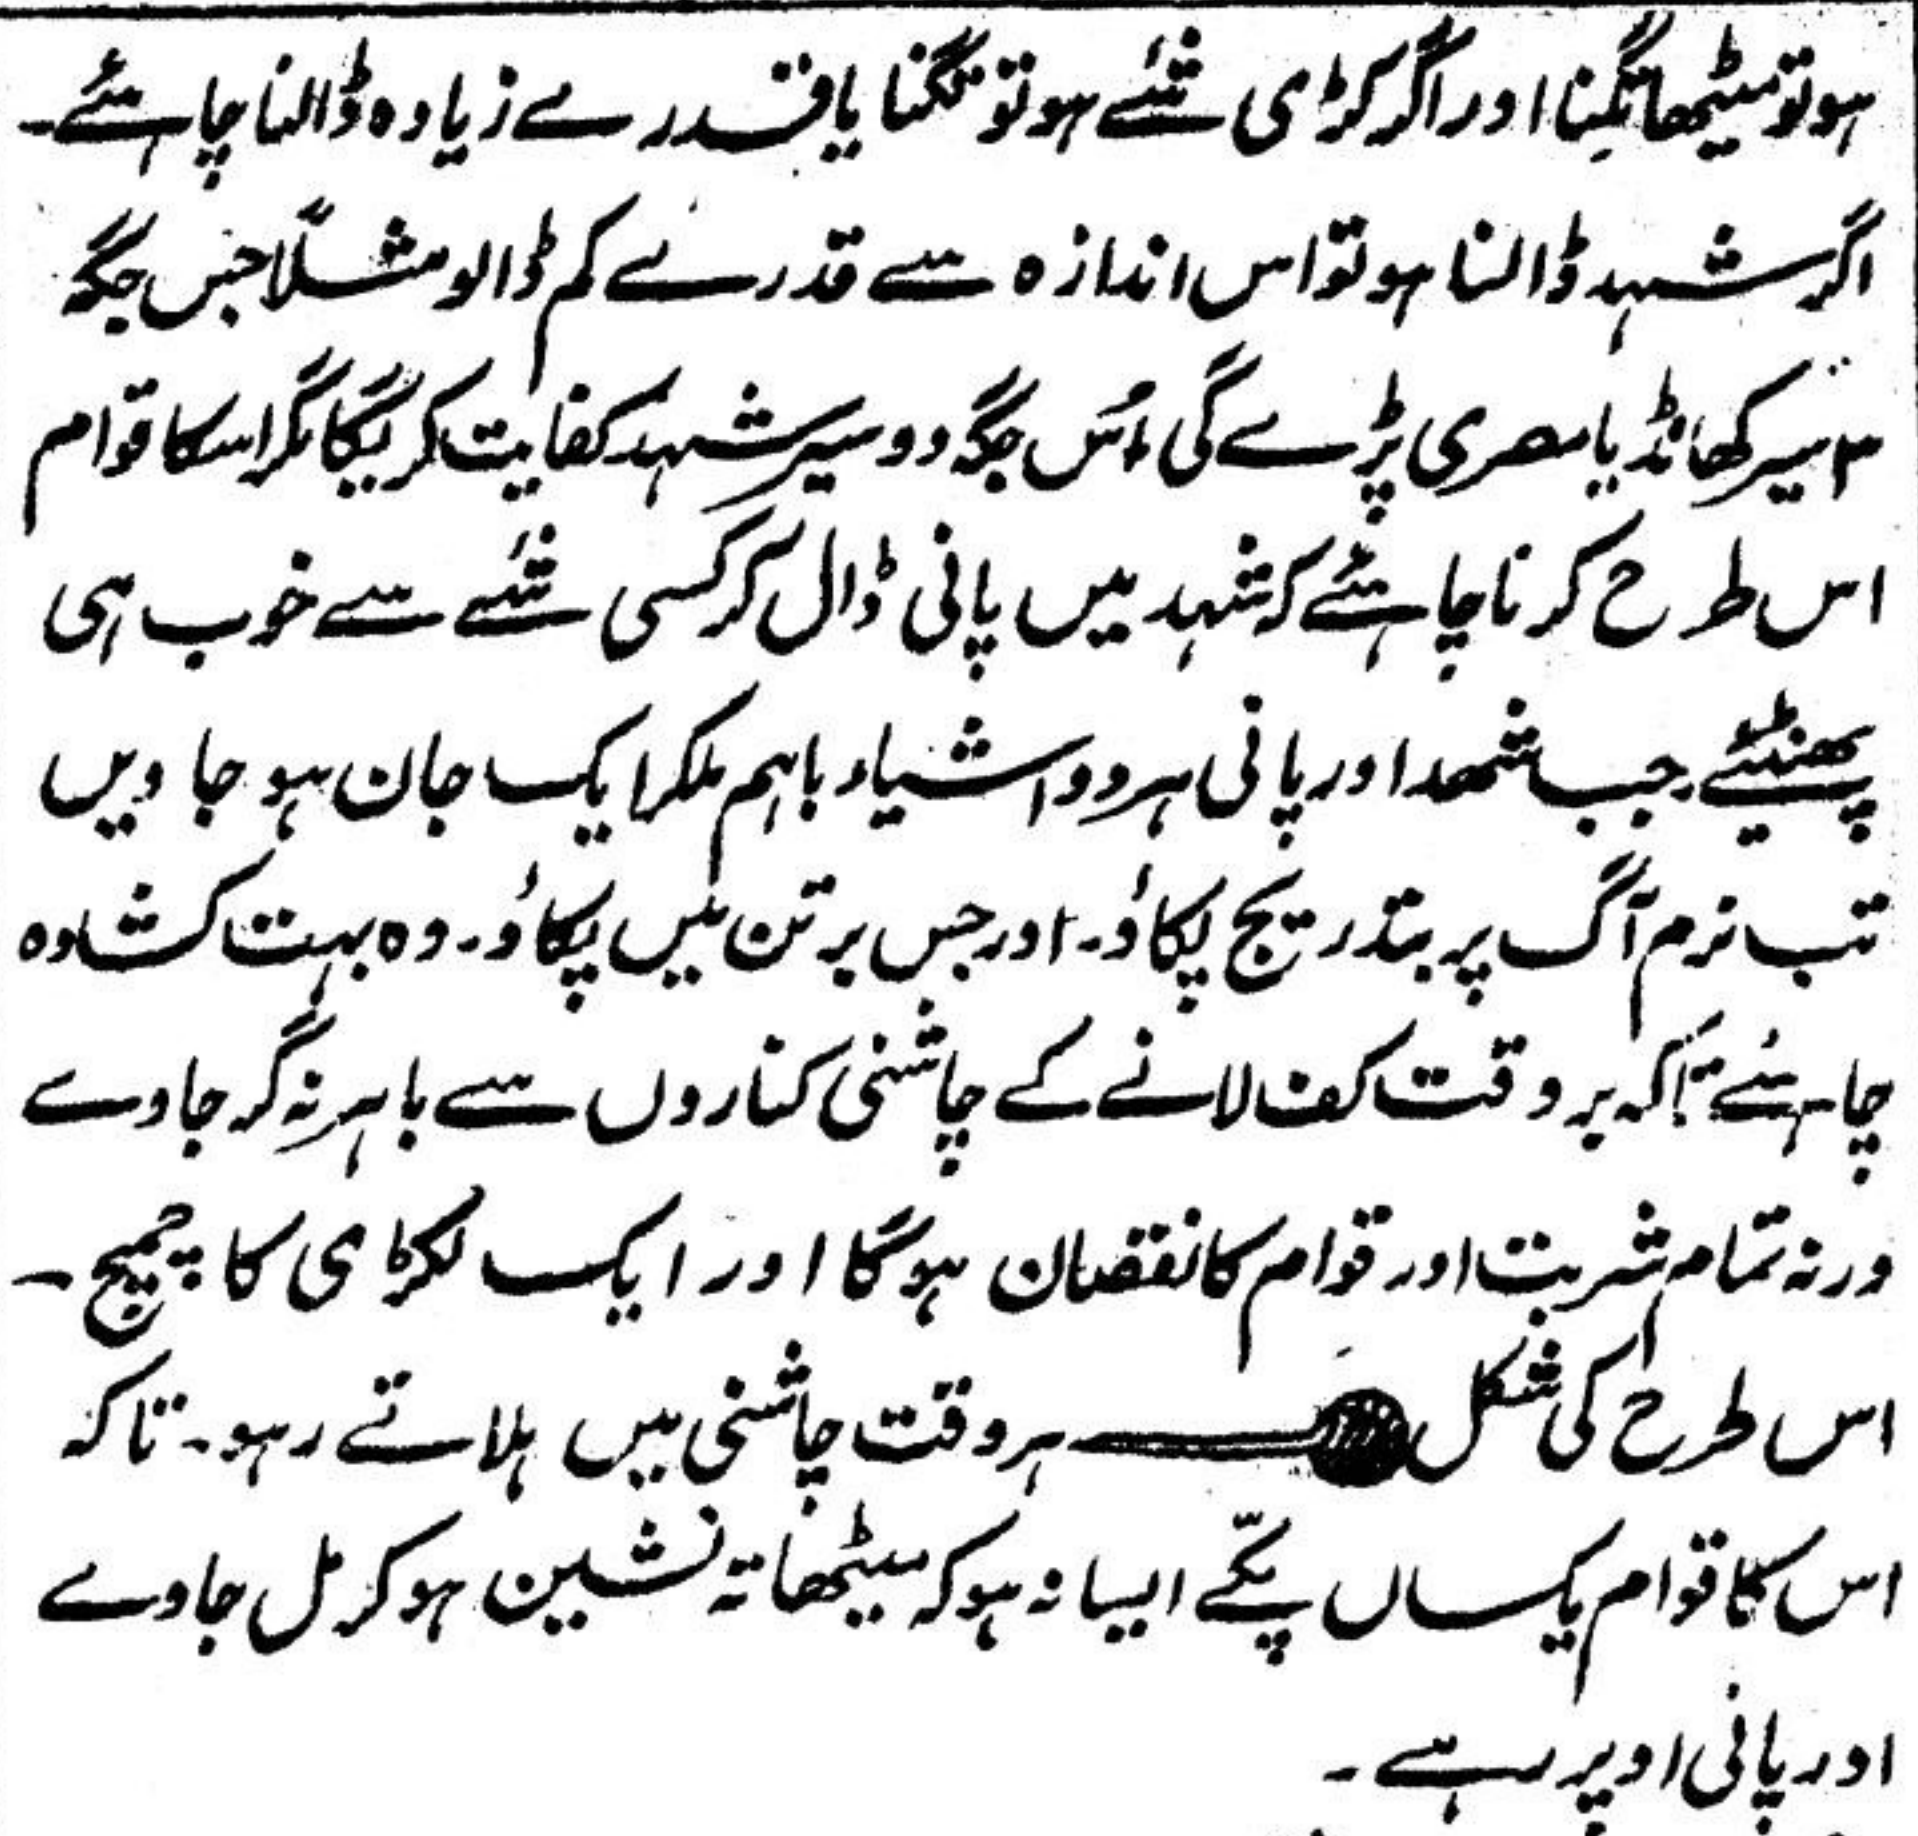 ہو تو میٹھا تگنا اور اگر کڑی شئے ہو تو تگنا یا قدرے زیادہ ڈالنا چاہئے۔
اگر شہد ڈالنا ہو تو اس اندازہ سے قدرے کم ڈالو مثلاً جس جگہ
۳ سیر کھانڈ یا مصری پڑے گی اُس جگہ دو سیر شہد کفایت کریگا مگر اسکا قوام
اس طرح کرنا چاہئے کہ شہد میں پانی ڈال کر کسی شئے سے خوب ہی
پھنٹیئے جب شھد اور پانی ہر دو اشیاء باہم ملکر ایک جان ہو جاویں
تب نرم آگ پر بتدریج پکاؤ۔ اور جس برتن میں پکاؤ۔ وہ بہت کشادہ
چاہئے تاکہ بروقت کف لانے کے چاشنی کناروں سے باہر نہ گر جاوے
ورنہ تمام شربت اور قوام کا نقصان ہوگا اور ایک لکڑی کا چمچ۔
اس طرح کی شکل ہر وقت چاشنی میں ہلاتے رہو۔ تاکہ
اس کا قوام یکساں پکے ایسا نہ ہو کہ میٹھا تہ نشین ہو کر مل جاوے
اور پانی اوپر رہے۔